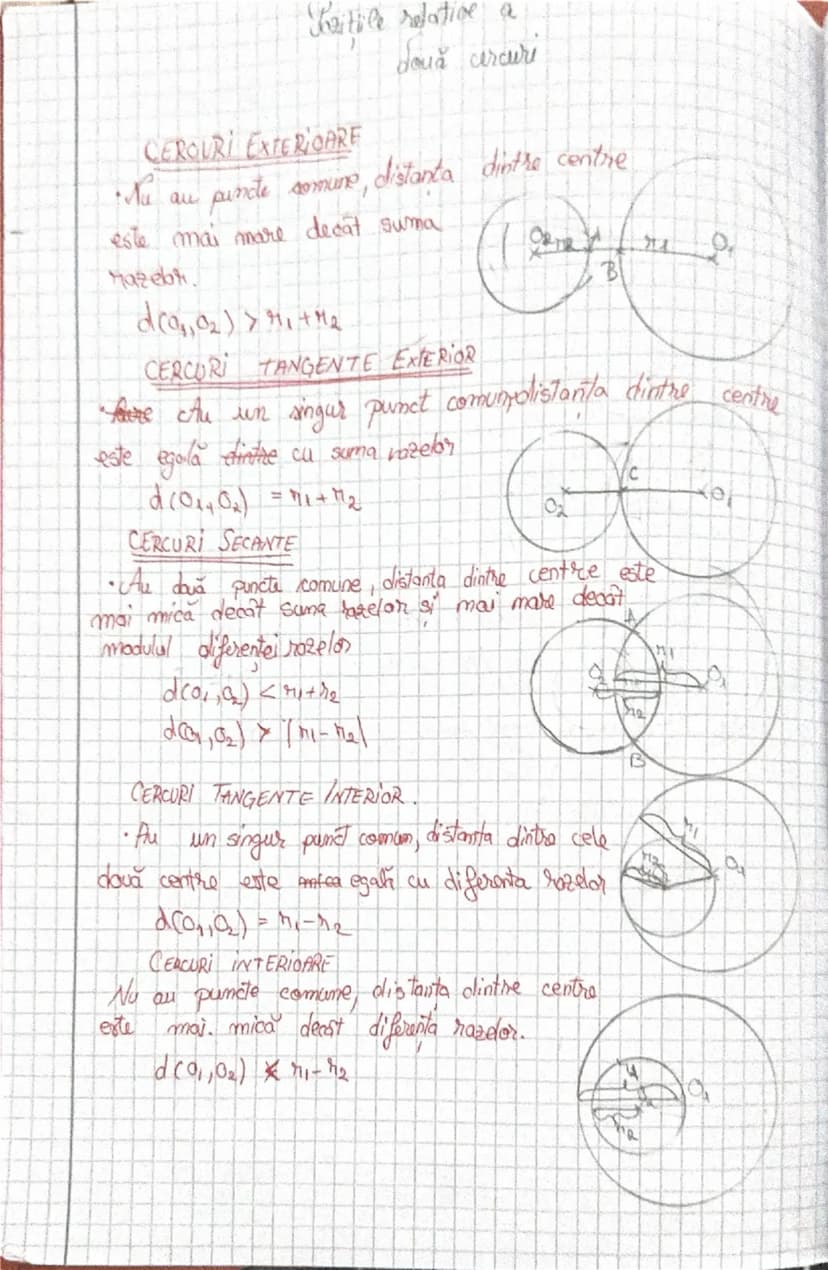 Pozițiile relative a
două cercuri
CERCURI EXTERIOARE
• Nu au puncte comune, distanta dintre centre
este mai mare decât suma
razelor.
d(O₁,O₂) > r₁ + r₂
O₂ r₂ A B r₁ O₁
CERCURI TANGENTE EXTERIOR
• Au un singur punct comun, distanța dintre centre
este egală dintre cu suma razelor
d(O₁,O₂) = r₁ + r₂
O₂ C O₁
CERCURI SECANTE
• Au două puncte comune, distanta dintre centre este
mai mică decât suma razelor și mai mare decât
modulul diferenței razelor
d(O₁,O₂) < r₁ + r₂
d(O₁,O₂) > |r₁ - r₂|
A r₁ O₂ O₁ r₂ B
CERCURI TANGENTE INTERIOR.
• Au un singur punct comun, distanta dintre cele
două centre este egală cu diferenta razelor
d(O₁,O₂) = r₁ - r₂
r₁ r₂ O₁
CERCURI INTERIOARE
Nu au puncte comune, distanța dintre centre
este mai. mică decât diferența razelor.
d(O₁,O₂) < r₁ - r₂
O₁ r₂